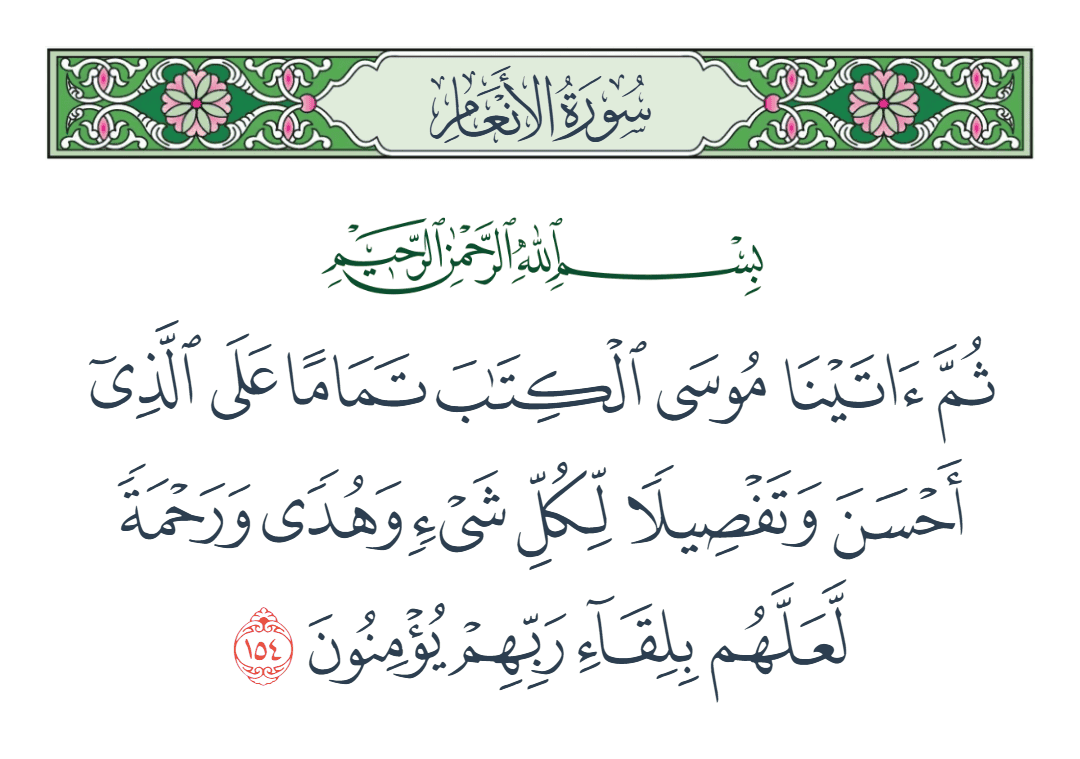 سُورَةُ الأَنْعَامِ
بِسْمِ ٱللَّهِ ٱلرَّحْمَٰنِ ٱلرَّحِيمِ
ثُمَّ ءَاتَيْنَا مُوسَى ٱلْكِتَٰبَ تَمَامًا عَلَى ٱلَّذِىٓ
أَحْسَنَ وَتَفْصِيلًا لِّكُلِّ شَىْءٍ وَهُدًى وَرَحْمَةً
لَّعَلَّهُم بِلِقَآءِ رَبِّهِمْ يُؤْمِنُونَ ١٥٤